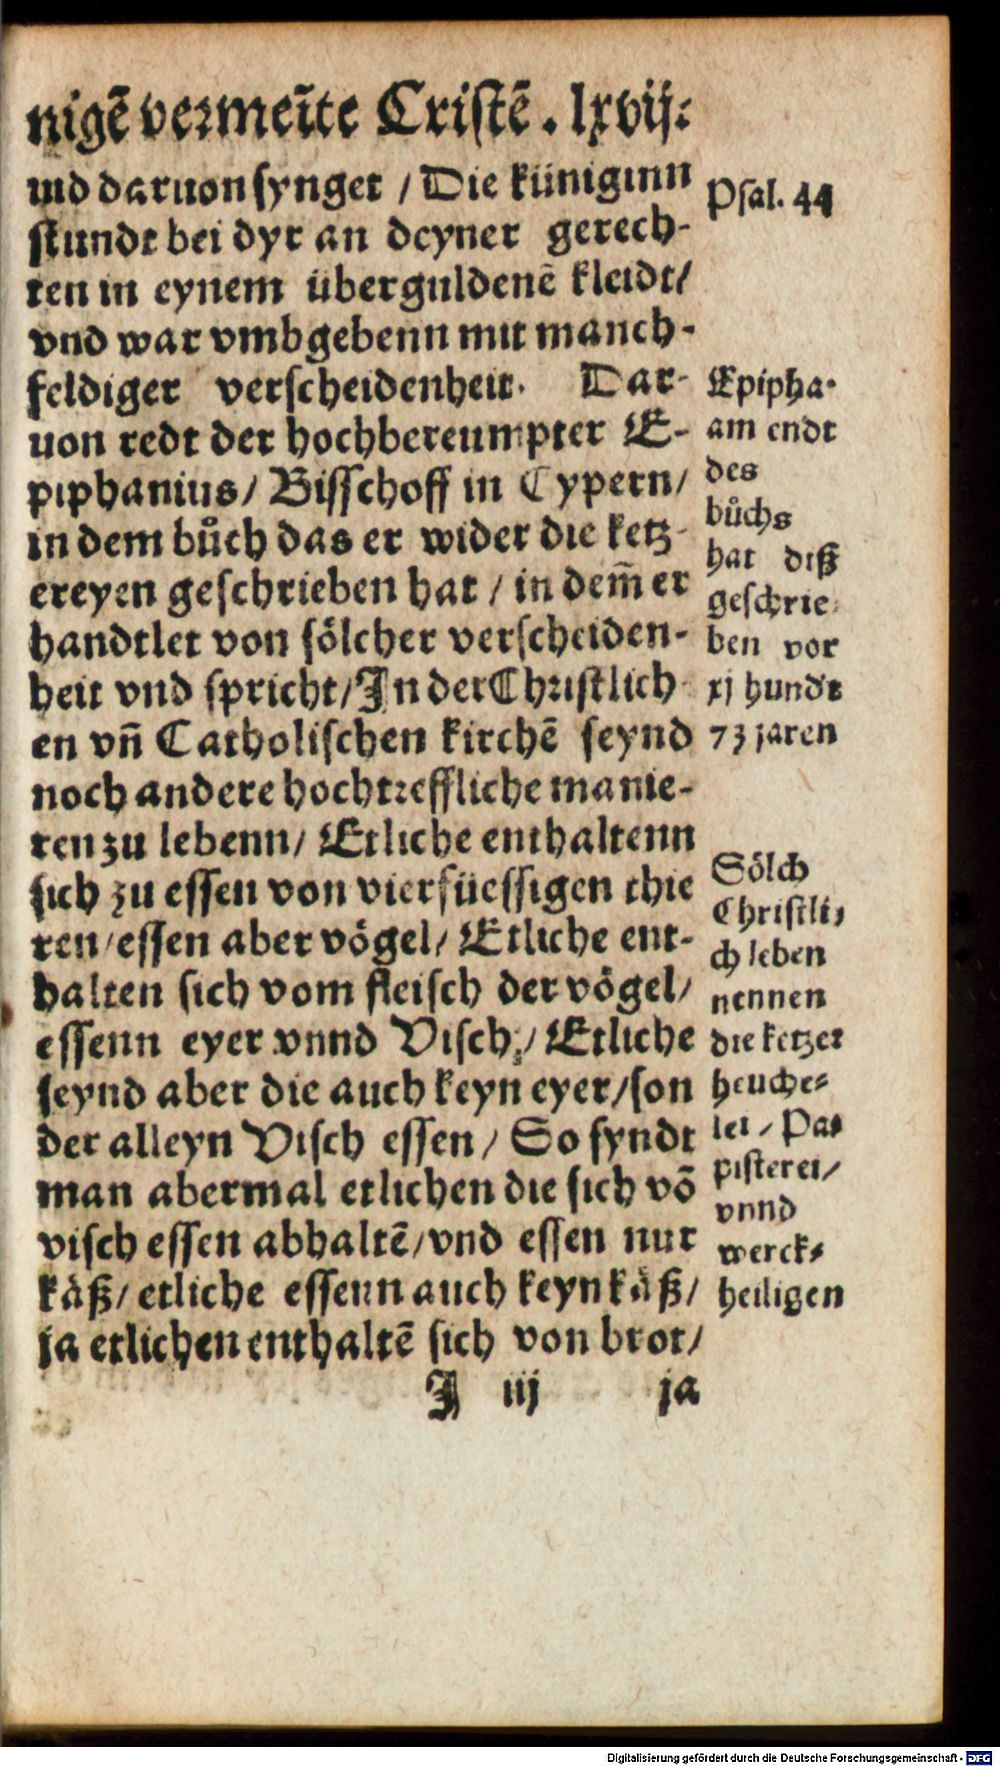 nigē vermeīte Cristē. lxvij.
uid daruon synget / Die küniginn
stundt bei dyr an deyner gerech-
ten in eynem überguldenē kleidt/
vnd war vmbgebenn mit manch-
feldiger verscheidenheit. Dar-
uon redt der hochbereumpter E-
piphanius/ Bisschoff in Cypern/
in dem bůch das er wider die ketz-
ereyen geschrieben hat / in dem̄ er
handtlet von sölcher verscheiden-
heit vnd spricht/ In der Christlich-
en vn̄ Catholischen kirchē seynd
noch andere hochtreffliche manie-
ren zu lebenn/ Etliche enthaltenn
sich zu essen von vierfüessigen thie
ren/ essen aber vögel/ Etliche ent-
halten sich vom fleisch der vögel/
essenn eyer vnnd Visch/ Etliche
seynd aber die auch keyn eyer/ son
der alleyn Visch essen/ So fyndt
man abermal etlichen die sich vō
visch essen abhaltē/ vnd essen nur
käß/ etliche essenn auch keyn käß/
ja etlichen enthaltē sich von brot/
J iij ja
Psal. 44
Epipha-
am endt
des
bůchs
hat diß
geschrie-
ben vor
xj hundt
73 jaren
Sölch
Christli-
ch leben
nennen
die ketzer
heuche-
lei, Pa-
pisterei/
vnnd
werck-
heiligen
Digitalisierung gefördert durch die Deutsche Forschungsgemeinschaft - DFG